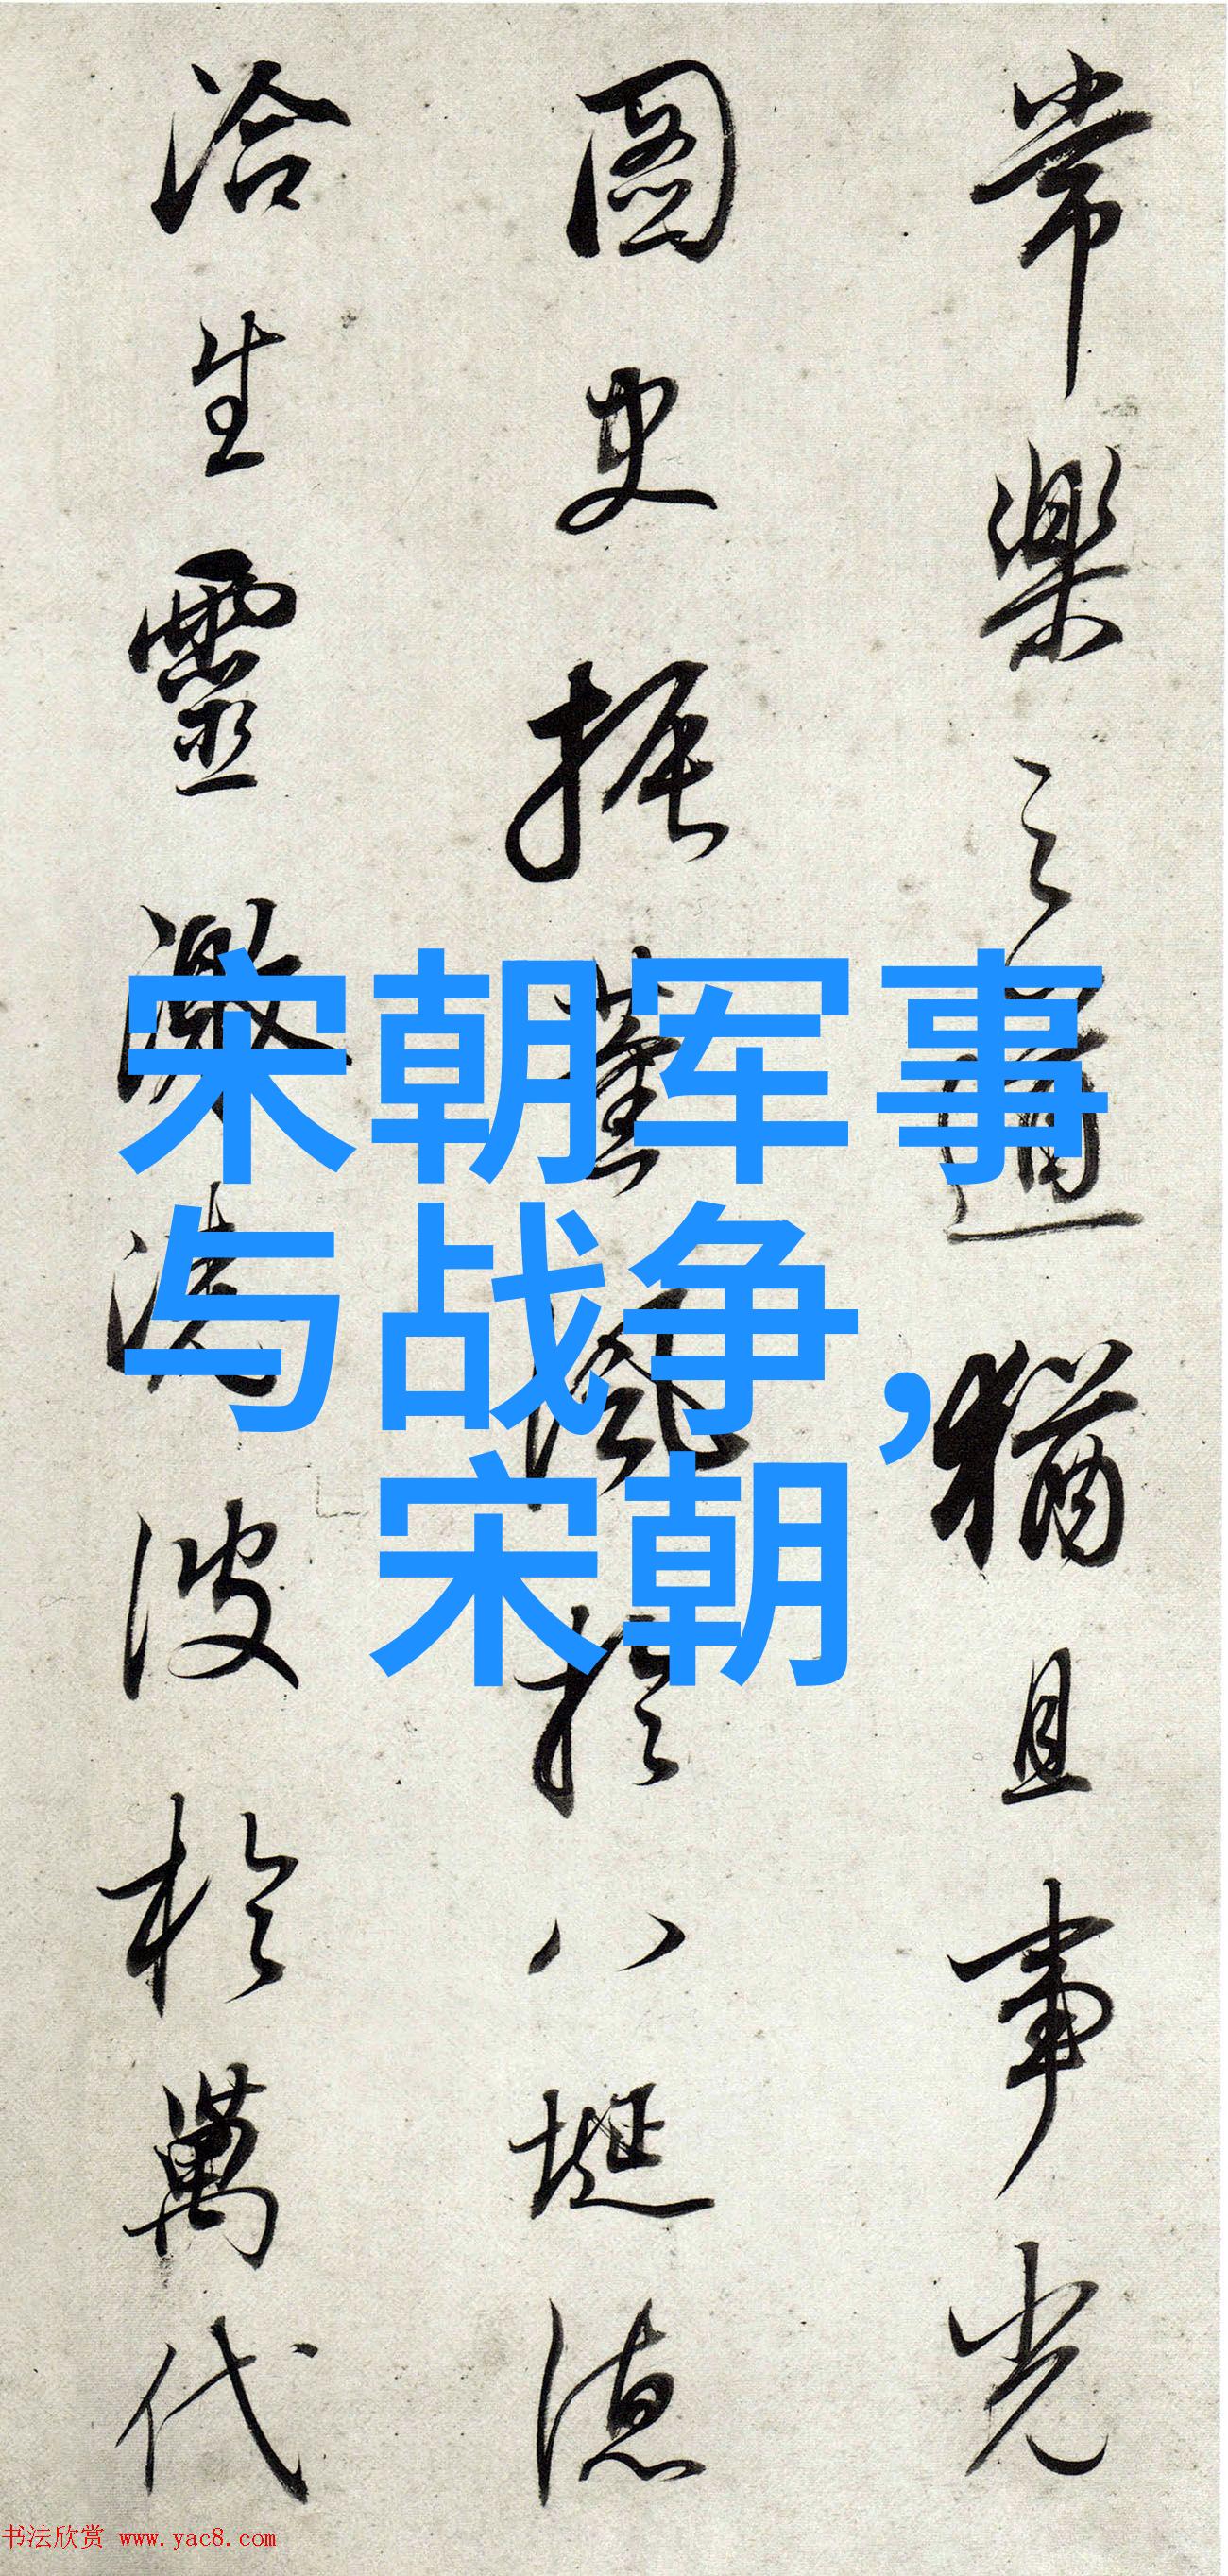 常樂之猶且事光
圖史振薰風於八埏德
洽生靈激波於萬代
宋朝军事
与战争，
宋朝
书法欣赏 www.yac8.com